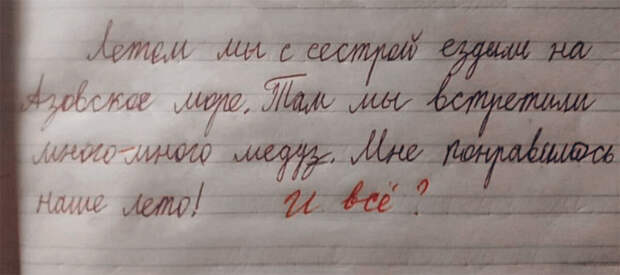 Летом мы с сестрой ездили на
Азовское море. Там мы встретили
много-много медуз. Мне понравилось
наше лето! И всё?